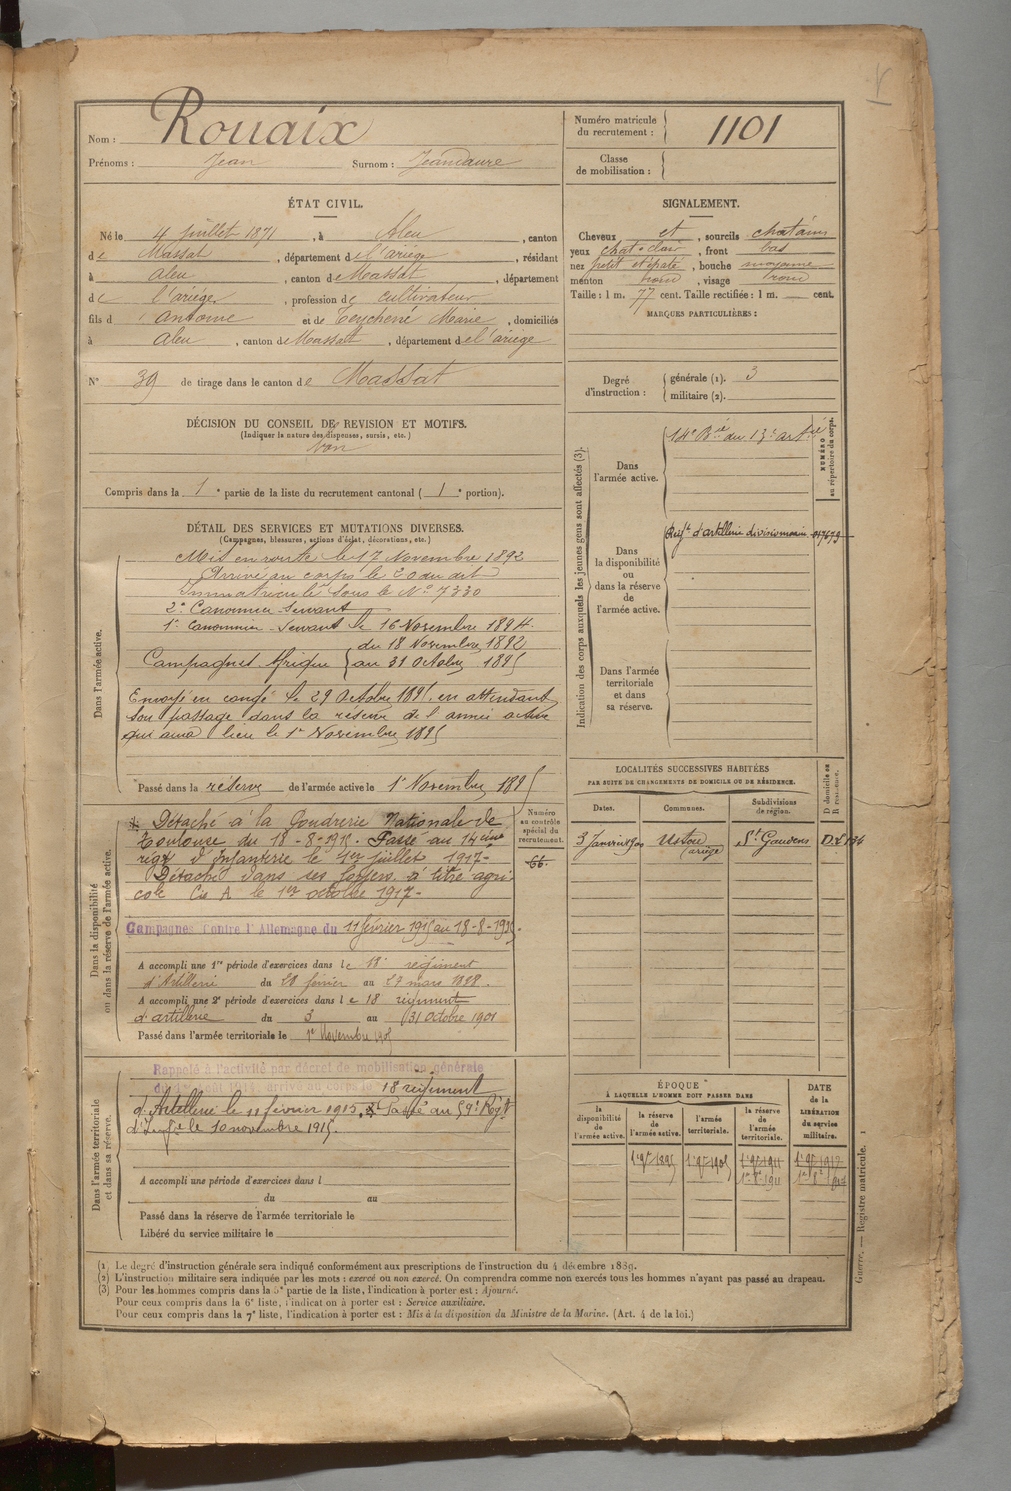 Nom : Rouaix
Prénoms : Jean Surnom : Jeandaure
Numéro matricule du recrutement : 1101
Classe de mobilisation :
ÉTAT CIVIL.
Né le 4 juillet 1871, à Aleu, canton
de Massat, département de l'ariège, résidant
à aleu, canton de Massat, département
de l'ariége, profession de cultivateur
fils d'antoine et de Teychené Marie, domiciliés
à aleu, canton de Massat, département de l'ariege
N° 39 de tirage dans le canton de Massat
DÉCISION DU CONSEIL DE REVISION ET MOTIFS.
(Indiquer la nature des dispenses, sursis, etc.)
bon
Compris dans la 1e partie de la liste du recrutement cantonal (1e portion).
DÉTAIL DES SERVICES ET MUTATIONS DIVERSES.
(Campagnes, blessures, actions d'éclat, décorations, etc.)
Dans l'armée active.
Mis en route le 17 Novembre 1892
Arrivé au corps le 20 du dit
Immatriculé sous le No 7330
2e Canonnier Servant
1r Canonnier Servant le 16 Novembre 1894
Campagnes Afrique { du 18 Novembre 1892
au 31 Octobre 1895
Envoyé en congé le 29 Octobre 1895, en attendant
son passage dans la réserve de l'armée active
qui aura lieu le 1r Novembre 1895
Passé dans la réserve de l'armée active le 1r Novembre 1895
Dans la disponibilité ou dans la réserve de l'armée active.
Numéro au contrôle spécial du recrutement.
66.
Détaché à la Poudrerie Nationale de
Toulouse du 18-8-1915. Passé au 14ème
régt d'Infanterie le 1er juillet 1917-
Détaché dans ses foyers à titre agri
cole Cie A le 1er octobre 1917-
Campagnes Contre l'Allemagne du 11 février 1915 au 18-8-1915.
A accompli une 1re période d'exercices dans le 18e régiment
d'Artillerie du 28 février au 27 mars 1898.
A accompli une 2e période d'exercices dans le 18 régiment
d'artillerie du 3 au 31 octobre 1901
Passé dans l'armée territoriale le 1er Novembre 1905
Dans l'armée territoriale et dans sa réserve.
Rappelé à l'activité par décret de mobilisation générale
du 1er Août 1914, arrivé au corps le 18 régiment
d'Artillerie le 11 février 1915, Passé au 59e Régt
d'Inf le 10 novembre 1915.
A accompli une période d'exercices dans l
du au
Passé dans la réserve de l'armée territoriale le
Libéré du service militaire le
SIGNALEMENT.
Cheveux et, sourcils chatains
yeux chat. clair, front bas
nez petit et épaté, bouche moyenne
menton rond, visage rond
Taille : 1 m. 77 cent. Taille rectifiée : 1 m. — cent.
MARQUES PARTICULIÈRES :
Degré d'instruction : { générale (1). 3
militaire (2).
Indication des corps auxquels les jeunes gens sont affectés (3).
NUMÉRO au répertoire du corps.
Dans l'armée active. 14e Bie du 13e artie
Dans la disponibilité ou dans la réserve de l'armée active.
Regt d'artillerie divisionnaire 017679
Dans l'armée territoriale et dans sa réserve.
LOCALITÉS SUCCESSIVES HABITÉES
PAR SUITE DE CHANGEMENTS DE DOMICILE OU DE RÉSIDENCE.
Dates. Communes. Subdivisions de région. D domicile ou R résidence.
3 Janvier 1900 Ustou (ariège) St Gaudens D.L 134
ÉPOQUE
À LAQUELLE L'HOMME DOIT PASSER DANS
DATE de la LIBÉRATION du service militaire.
la disponibilité de l'armée active. la réserve de l'armée active. l'armée territoriale. la réserve de l'armée territoriale.
1r 9e 1895 1r 9e 1905 1r 9e 1911 1r 9e 1917
1r 8e 1911 1r 8e 1917
(1) Le degré d'instruction générale sera indiqué conformément aux prescriptions de l'instruction du 4 décembre 1889.
(2) L'instruction militaire sera indiquée par les mots : exercé ou non exercé. On comprendra comme non exercés tous les hommes n'ayant pas passé au drapeau.
(3) Pour les hommes compris dans la 5e partie de la liste, l'indication à porter est : Ajourné.
Pour ceux compris dans la 6e liste, l'indication à porter est : Service auxiliaire.
Pour ceux compris dans la 7e liste, l'indication à porter est : Mis à la disposition du Ministre de la Marine. (Art. 4 de la loi.)
Guerre. — Registre matricule. 1